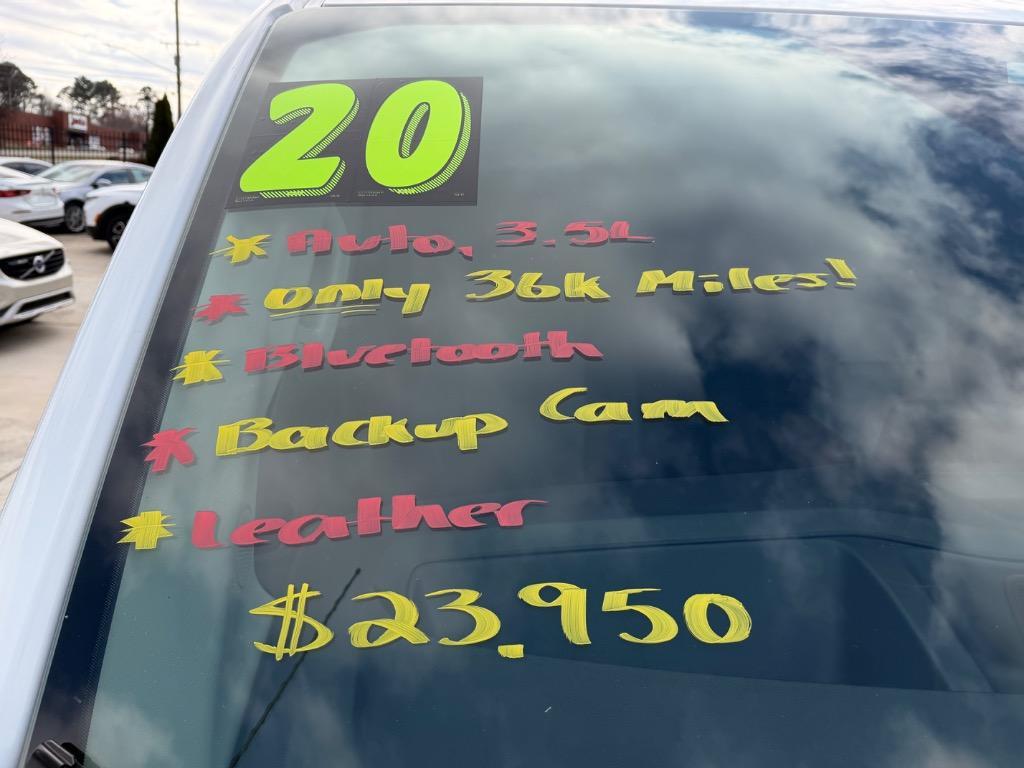 20
* Auto, 3.5L
* Only 36k Miles!
* Bluetooth
* Backup Cam
* Leather
$23,950